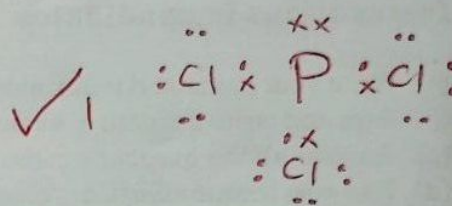 ✓1 :Cl: P :Cl:
:Cl: